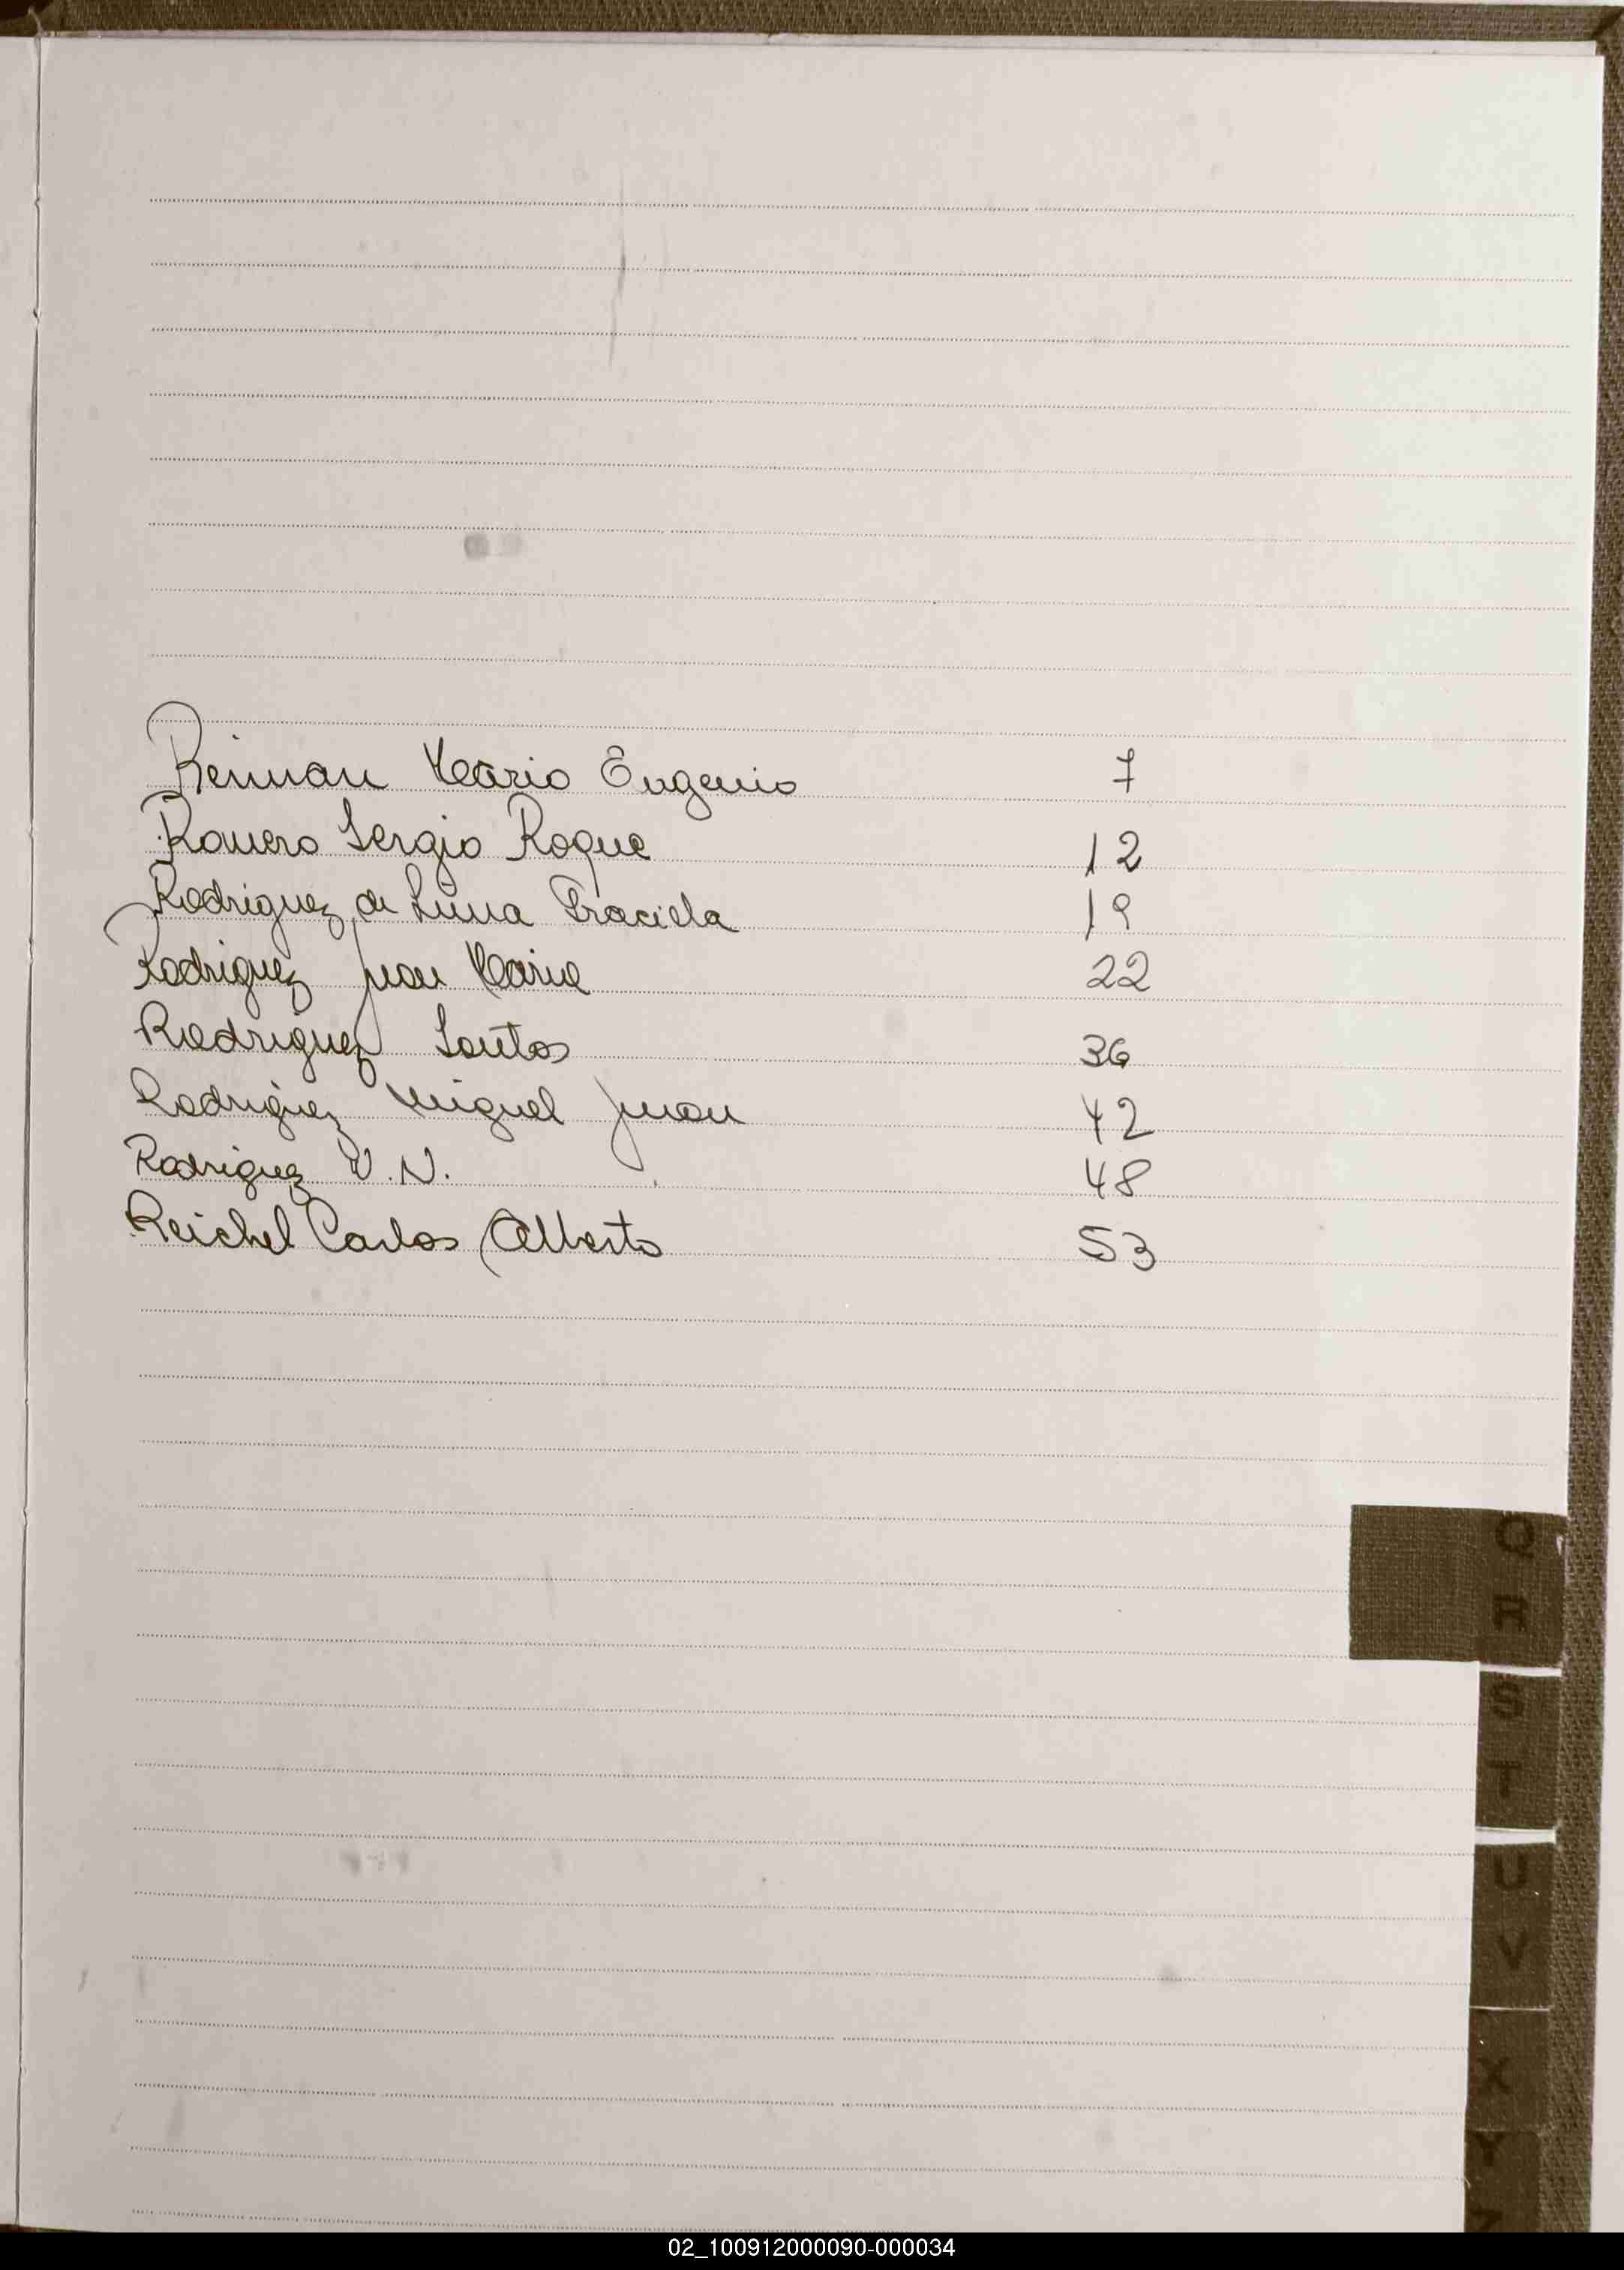 Reiman Mario Eugenio 7
Romero Sergio Roque 12
Rodriguez de Luna Graciela 19
Rodriguez Juan Maria 22
Rodriguez Santos 36
Rodriguez Miguel Juan 42
Rodriguez V. N. 48
Reichel Carlos Alberto 53
Q
R
S
T
U
V
X
Y
Z
02_100912000090-000034